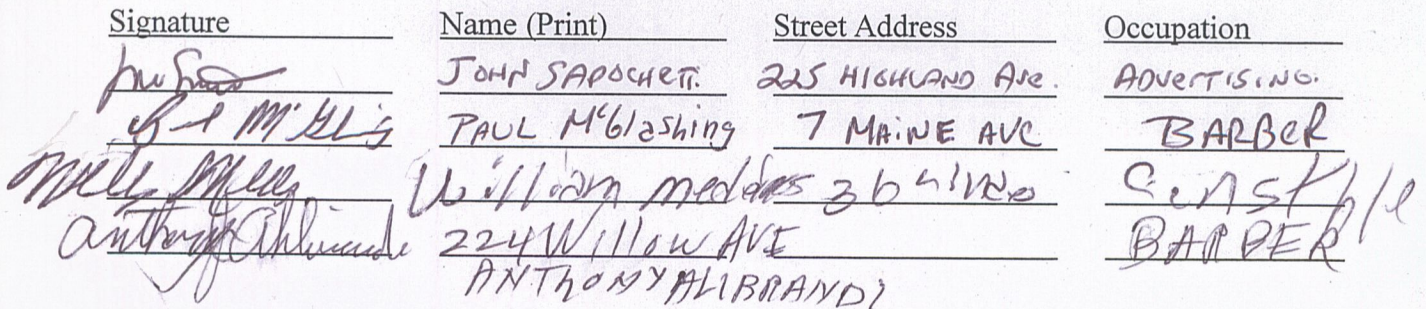 Signature Name (Print) Street Address Occupation
JOHN SAPOCHETTI 225 HIGHLAND Ave. ADVERTISING.
PAUL McGlashing 7 MAINE AVE BARBER
William 36 Constble
Anthony 224 Willow AVE BARBER
ANTHONY ALIBRANDI